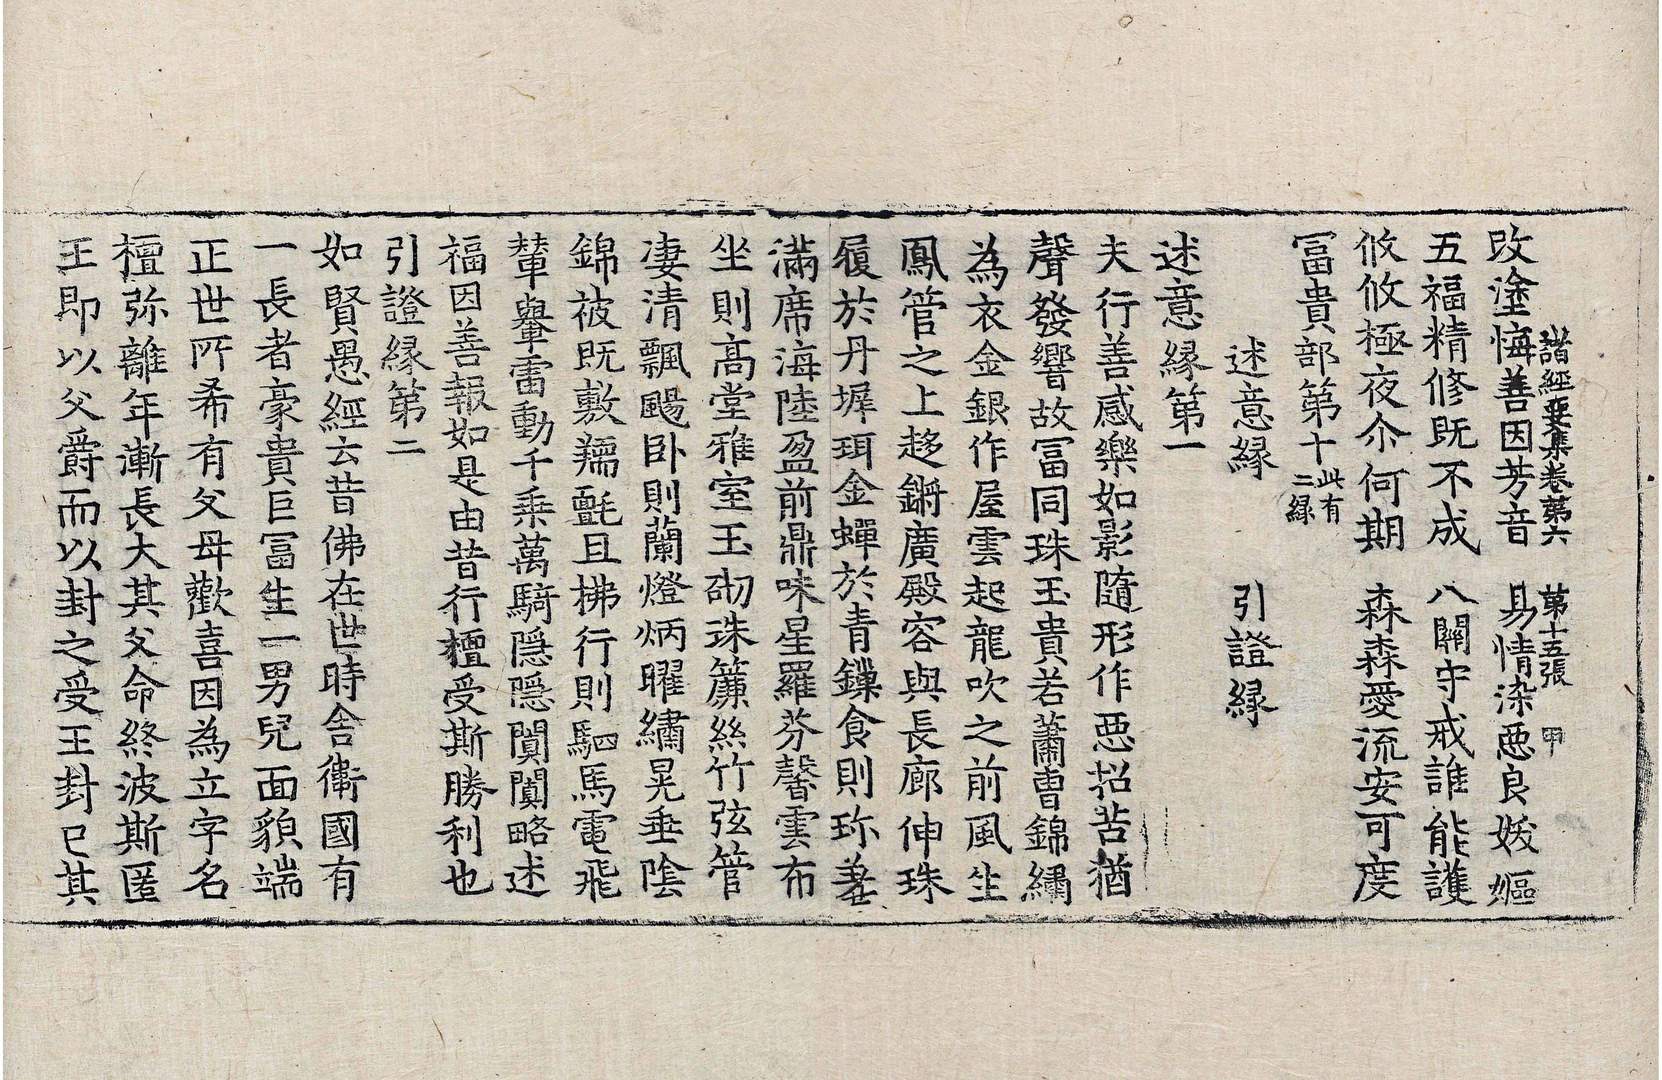 諸經要集卷第六 第十五張 甲
改塗悔善因芳音 易情染惡良媛嫗
五福精修既不成 八關守戒誰能護
攸攸極夜尒何期 森森愛流安可度
冨貴部第十此有二縁
述意縁 引證縁
述意縁第一
夫行善感樂如影隨形作惡招苦猶
聲發響故冨同珠玉貴若蕭曹錦繡
為衣金銀作屋雲起龍吹之前風生
鳳管之上趍鏘廣殿容與長廊伸珠
履於丹墀珥金蟬於青鏁食則珎羞
滿席海陸盈前鼎味星羅芬馨雲布
坐則高堂雅室玉砌珠簾絲竹弦管
凄清飄颺卧則蘭燈炳曜繡晃垂陰
錦被既敷㲪氈且拂行則駟馬電飛
輦轝雷動千乘萬騎隱隱闐闐略述
福因善報如是由昔行檀受斯勝利也
引證縁第二
如賢愚經云昔佛在世時舎衛國有
一長者豪貴巨冨生一男兒面貌端
正世所希有父母歡喜因為立字名
檀弥離年漸長大其父命終波斯匿
王即以父爵而以封之受王封已其